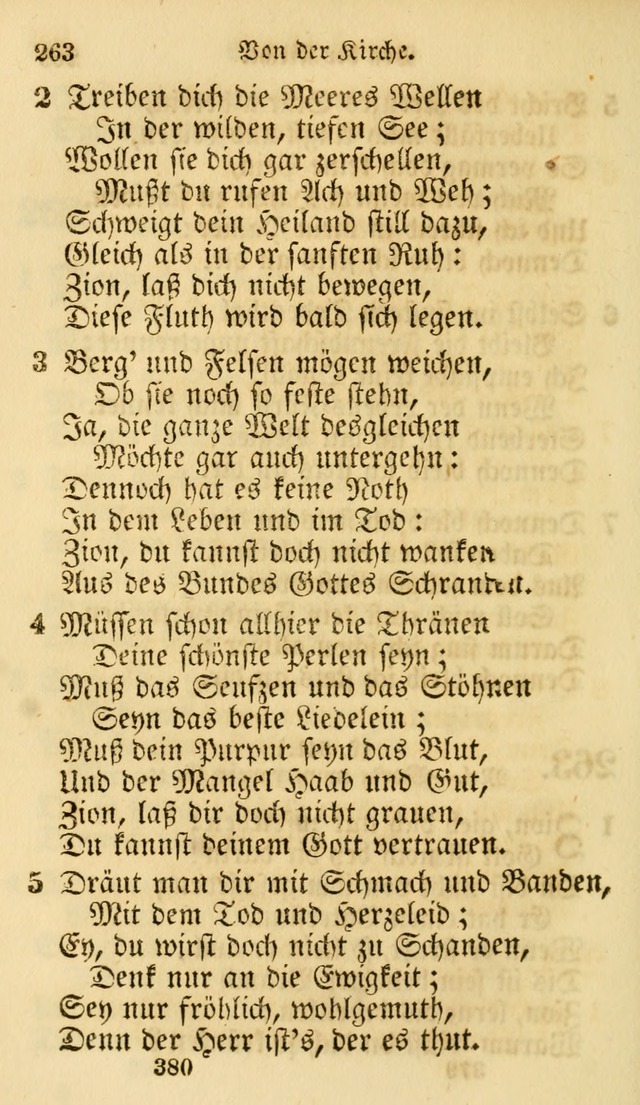 263 Von der Kirche.
2 Treiben dich die Meeres Wellen
In der wilden, tiefen See;
Wollen sie dich gar zerschellen,
Mußt du rufen Ach und Weh;
Schweigt dein Heiland still dazu,
Gleich als in der sanften Ruh:
Zion, laß dich nicht bewegen,
Diese Fluth wird bald sich legen.
3 Berg' und Felsen mögen weichen,
Ob sie noch so feste stehn,
Ja, die ganze Welt desgleichen
Möchte gar auch untergehn:
Dennoch hat es keine Noth
In dem Leben und im Tod:
Zion, du kannst doch nicht wanken
Aus des Bundes Gottes Schranken.
4 Müssen schon allhier die Thränen
Deine schönste Perlen seyn;
Muß das Seufzen und das Stöhnen
Seyn das beste Liedelein;
Muß dein Purpur seyn das Blut,
Und der Mangel Haab und Gut,
Zion, laß dir doch nicht grauen,
Du kannst deinem Gott vertrauen.
5 Dräut man dir mit Schmach und Banden,
Mit dem Tod und Herzeleid;
Ey, du wirst doch nicht zu Schanden,
Denk nur an die Ewigkeit;
Sey nur fröhlich, wohlgemuth,
Denn der Herr ist's, der es thut.
380